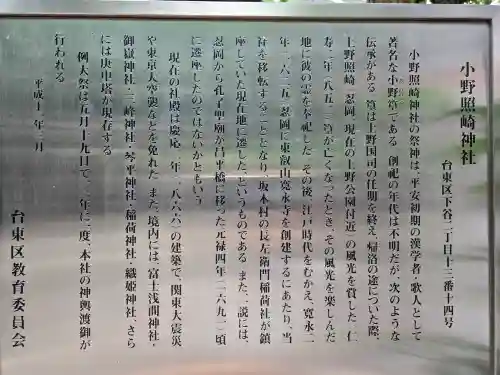 小野照崎神社
台東区下谷二丁目十三番十四号
小野照崎神社の祭神は、平安初期の漢学者・歌人として
著名な小野篁である。創祀の年代は不明だが、次のような
伝承がある。篁は上野国司の任期を終え、帰洛の途についた際、
上野照崎（忍岡、現在の上野公園付近）の風光を賞した。仁
寿二年（八五二）篁が亡くなったとき、その風光を楽しんだ
地に彼の霊を奉祀した。その後、江戸時代をむかえ、寛永二
年（一六二五）忍岡に東叡山寛永寺を創建するにあたり、当
社を移転することとなり、坂本村の長左衛門稲荷社が鎮
座していた現在地に遷した、というものである。また一説には、
忍岡から孔子聖廟が昌平橋に移った元禄四年（一六九一）頃
に遷座したのではないかともいう。
現在の社殿は慶応二年（一八六六）の建築で、関東大震災
や東京大空襲などを免れた。また、境内には、富士浅間神社・
御嶽神社・三峰神社・琴平神社・稲荷神社・織姫神社、さら
には庚申塔が現存する。
例大祭は五月十九日で、三年に一度、本社の神輿渡御が
行われる。
平成十一年三月
台東区教育委員会